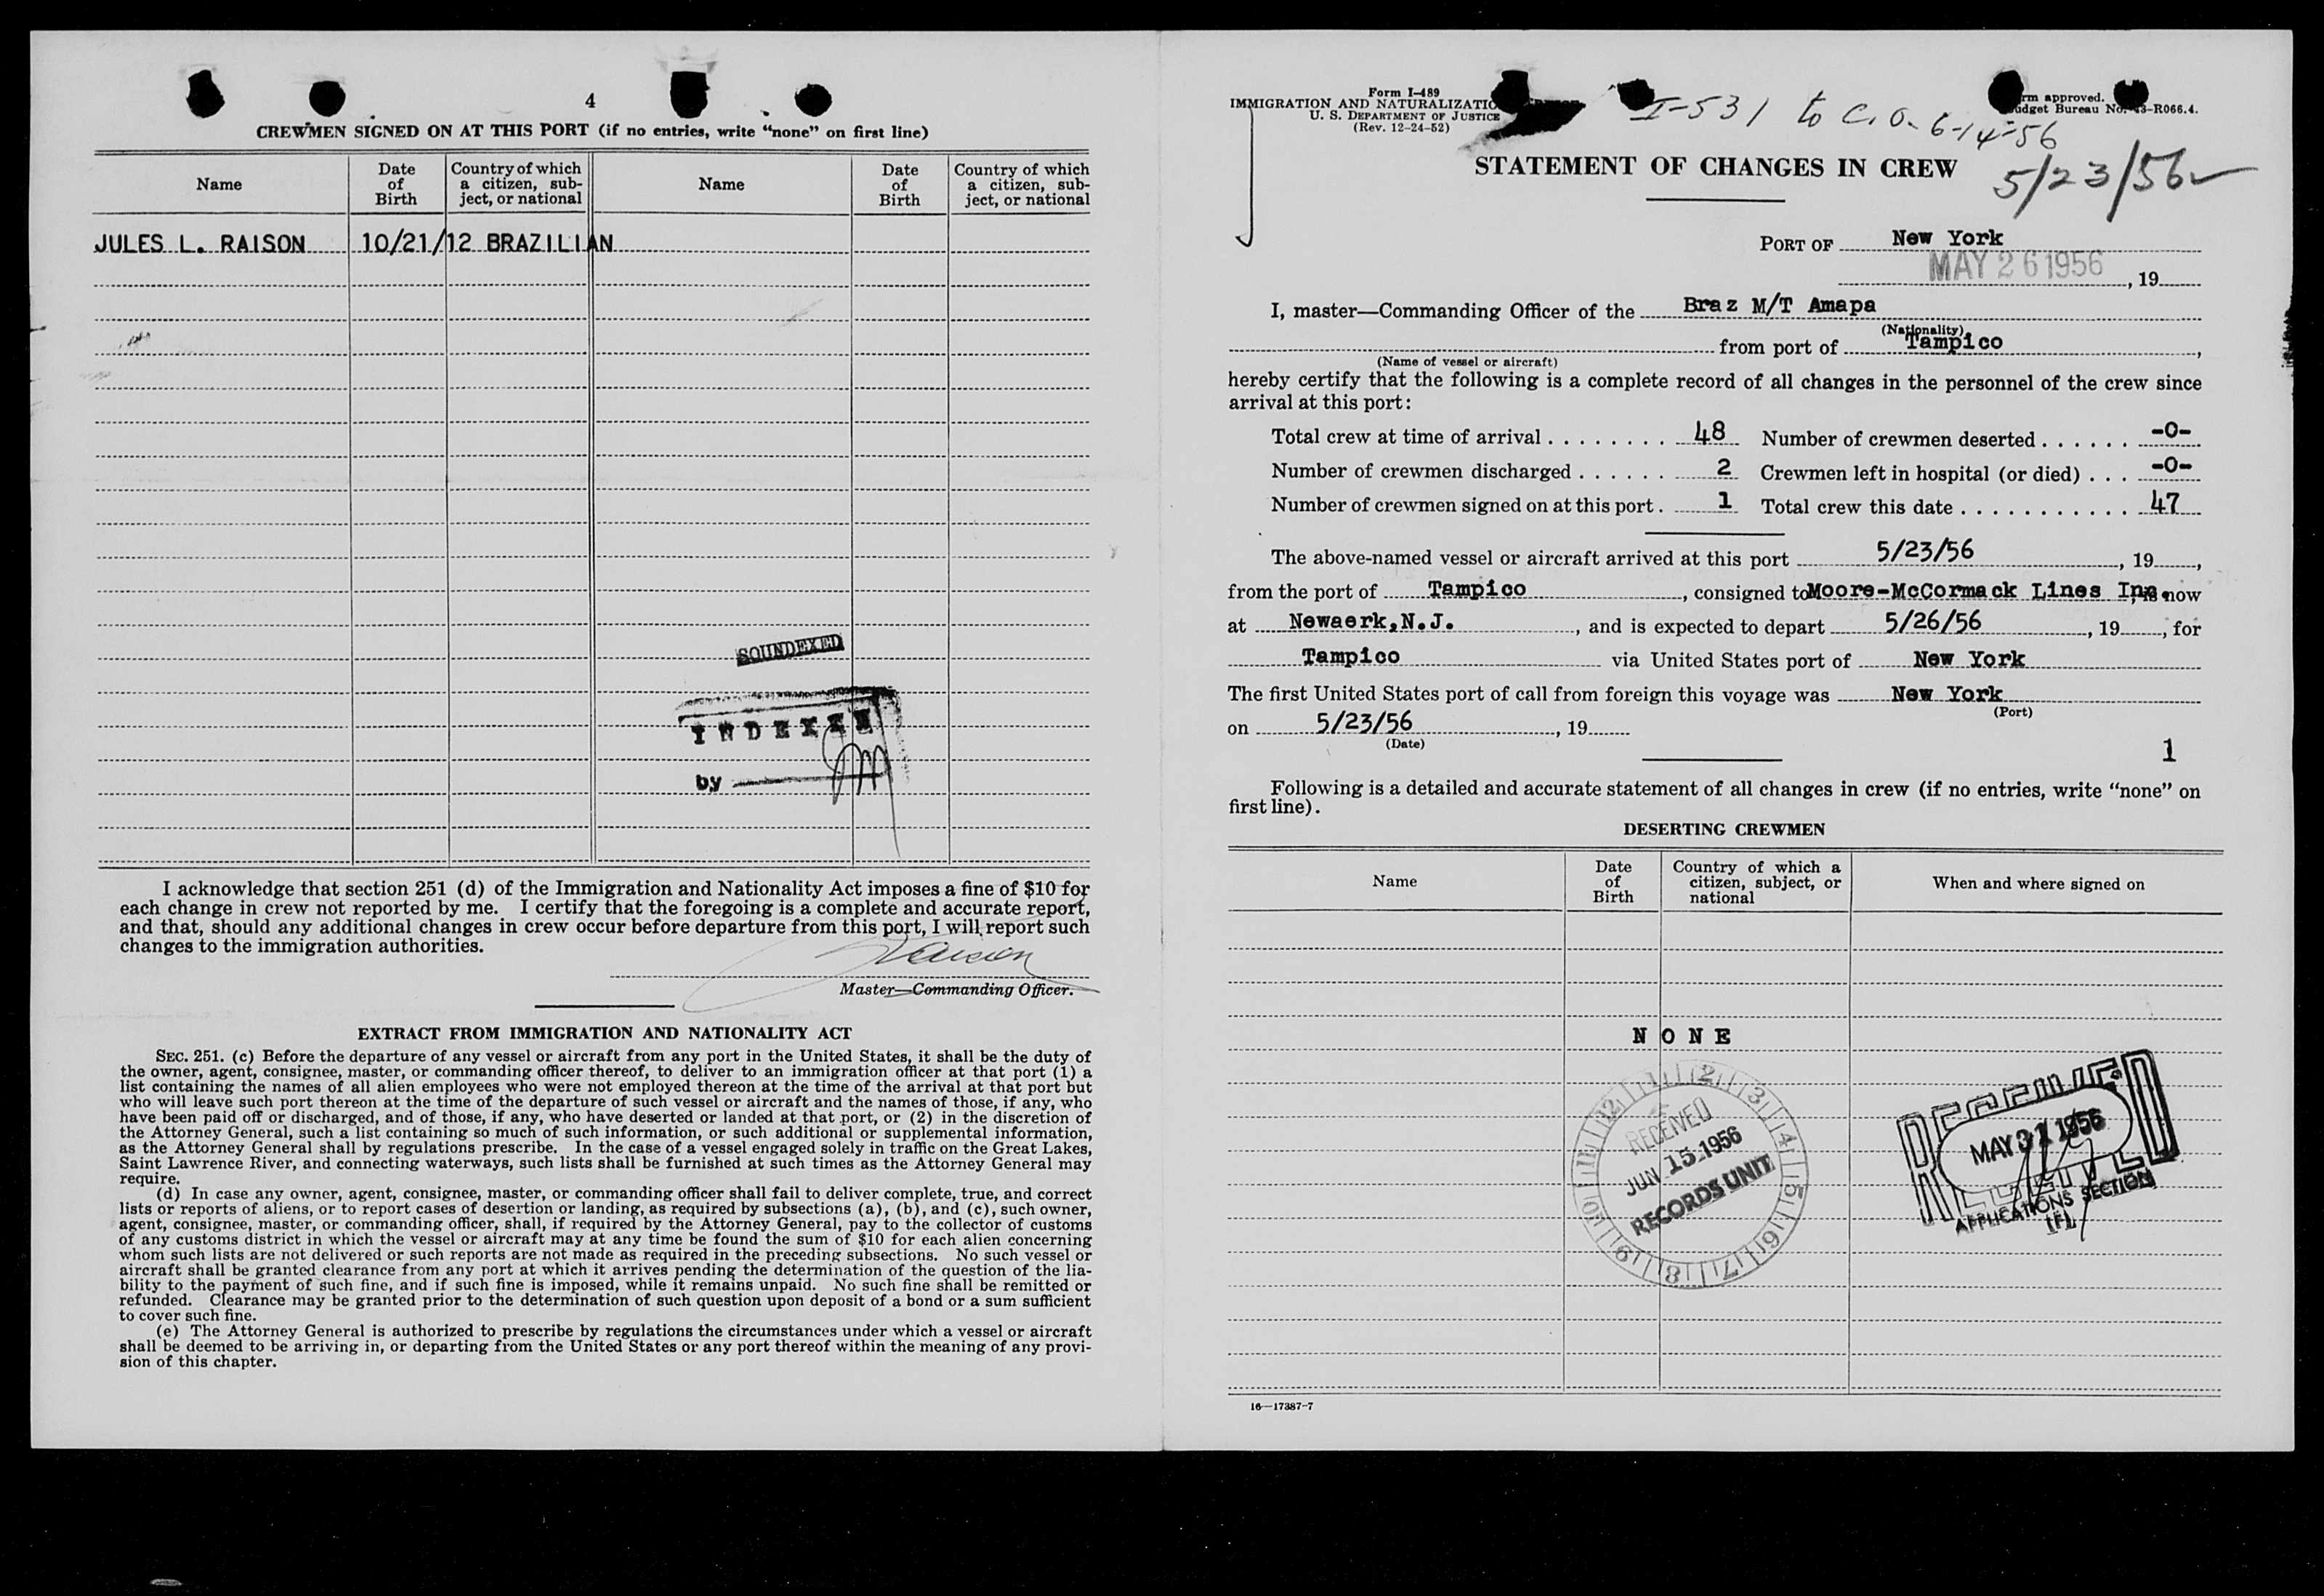 4
CREWMEN SIGNED ON AT THIS PORT (if no entries, write “none” on first line)
Name
Date of Birth
Country of which a citizen, subject, or national
Name
Date of Birth
Country of which a citizen, subject, or national
JULES L. RAISON 10/21/12 BRAZILIAN
SOUNDEXED
INDEXED
by
I acknowledge that section 251 (d) of the Immigration and Nationality Act imposes a fine of $10 for
each change in crew not reported by me. I certify that the foregoing is a complete and accurate report,
and that, should any additional changes in crew occur before departure from this port, I will report such
changes to the immigration authorities.
Master—Commanding Officer.
EXTRACT FROM IMMIGRATION AND NATIONALITY ACT
SEC. 251. (c) Before the departure of any vessel or aircraft from any port in the United States, it shall be the duty of
the owner, agent, consignee, master, or commanding officer thereof, to deliver to an immigration officer at that port (1) a
list containing the names of all alien employees who were not employed thereon at the time of the arrival at that port but
who will leave such port thereon at the time of the departure of such vessel or aircraft and the names of those, if any, who
have been paid off or discharged, and of those, if any, who have deserted or landed at that port, or (2) in the discretion of
the Attorney General, such a list containing so much of such information, or such additional or supplemental information,
as the Attorney General shall by regulations prescribe. In the case of a vessel engaged solely in traffic on the Great Lakes,
Saint Lawrence River, and connecting waterways, such lists shall be furnished at such times as the Attorney General may
require.
(d) In case any owner, agent, consignee, master, or commanding officer shall fail to deliver complete, true, and correct
lists or reports of aliens, or to report cases of desertion or landing, as required by subsections (a), (b), and (c), such owner,
agent, consignee, master, or commanding officer, shall, if required by the Attorney General, pay to the collector of customs
of any customs district in which the vessel or aircraft may at any time be found the sum of $10 for each alien concerning
whom such lists are not delivered or such reports are not made as required in the preceding subsections. No such vessel or
aircraft shall be granted clearance from any port at which it arrives pending the determination of the question of the lia-
bility to the payment of such fine, and if such fine is imposed, while it remains unpaid. No such fine shall be remitted or
refunded. Clearance may be granted prior to the determination of such question upon deposit of a bond or a sum sufficient
to cover such fine.
(e) The Attorney General is authorized to prescribe by regulations the circumstances under which a vessel or aircraft
shall be deemed to be arriving in, or departing from the United States or any port thereof within the meaning of any provi-
sion of this chapter.
Form I-489
IMMIGRATION AND NATURALIZATIO
U. S. DEPARTMENT OF JUSTICE
(Rev. 12-24-52)
rm approved.
udget Bureau No. 43-R066.4.
I-531 to C.O. 6-14-56
STATEMENT OF CHANGES IN CREW
5/23/56
PORT OF New York
MAY 26 1956, 19
I, master—Commanding Officer of the Braz M/T Amapa
(Nationality)
from port of Tampico,
(Name of vessel or aircraft)
hereby certify that the following is a complete record of all changes in the personnel of the crew since
arrival at this port:
Total crew at time of arrival . . . . . . . . 48 Number of crewmen deserted . . . . . . -0-
Number of crewmen discharged . . . . . . 2 Crewmen left in hospital (or died) . . . -0-
Number of crewmen signed on at this port . 1 Total crew this date . . . . . . . . . . . . 47
The above-named vessel or aircraft arrived at this port 5/23/56, 19,
from the port of Tampico, consigned to Moore-McCormack Lines Inc, is now
at Newaerk,N.J., and is expected to depart 5/26/56, 19, for
Tampico via United States port of New York
The first United States port of call from foreign this voyage was New York
(Port)
on 5/23/56, 19
(Date)
1
Following is a detailed and accurate statement of all changes in crew (if no entries, write “none” on
first line).
DESERTING CREWMEN
Name
Date of Birth
Country of which a citizen, subject, or national
When and where signed on
NONE
12 1 2 3 4 5 6 7 8 9 10 11
RECEIVED
JUN 15 1956
RECORDS UNIT
RECEIVED
MAY 31 1956
APPLICATIONS SECTION
(F)
16—17387-7